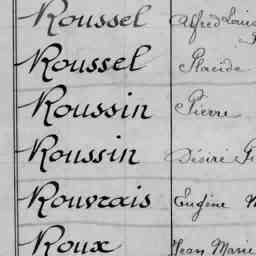 Roussel Alfred Louis
Roussel Placide
Roussin Pierre
Roussin Désiré
Rouvrais Eugène
Roux Jean Marie